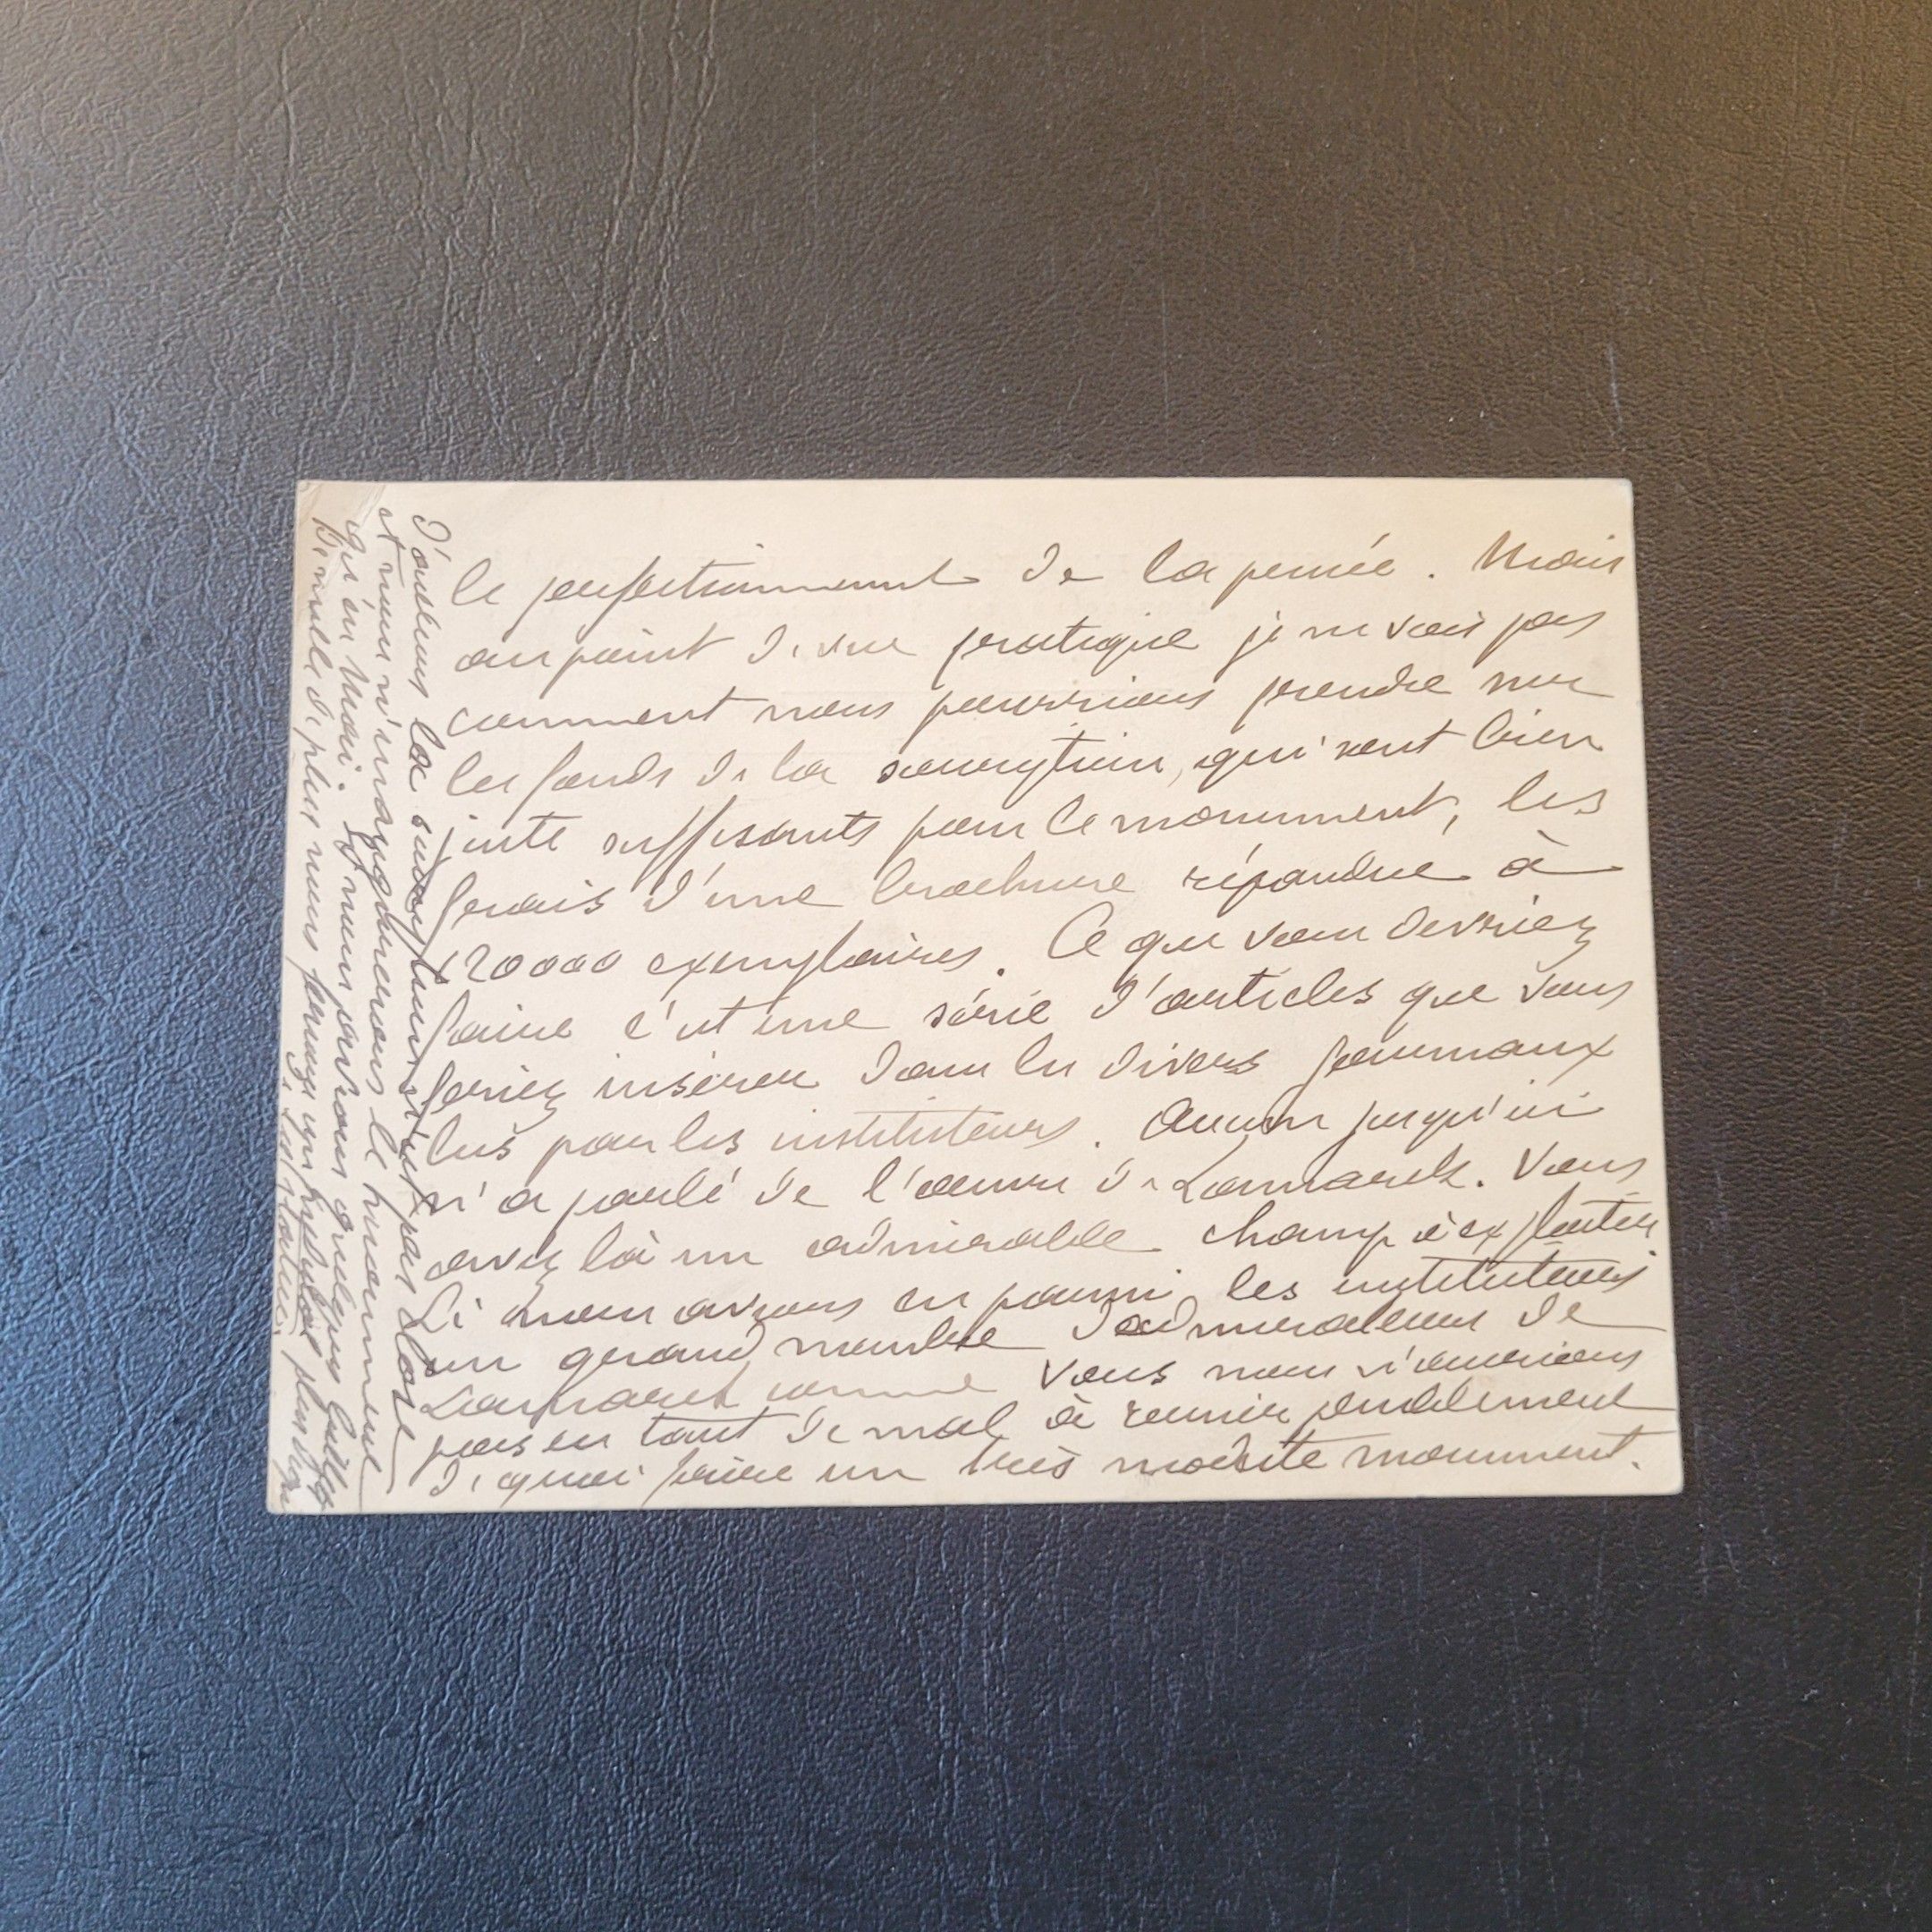 le perfectionnement de la pensée. Mais
au point de vue pratique je ne vois pas
comment nous pourrions prendre sur
les fonds de la souscription, qui sont bien
juste suffisants pour le monument, les
frais d'une brochure répandue à
120000 exemplaires. Ce que vous devriez
faire c'est une série d'articles que vous
feriez insérer dans les divers journaux
lus par les instituteurs. Aucun jusqu'ici
n'a parlé de l'œuvre de Lamarck. Vous
avez là un admirable champ à exploiter
Si nous avions eu parmi les instituteurs
un grand nombre d'admirateurs de
Lamarck comme vous nous n'aurions
pas eu tant de mal à réunir péniblement
de quoi faire un très modeste monument.
D'ailleurs la souscription n'est pas close
et nous n'inaugurerons le monument
qu'en Mai. Si nous avions quelques billets
de mille de plus nous ferions un piédestal plus
de statue.